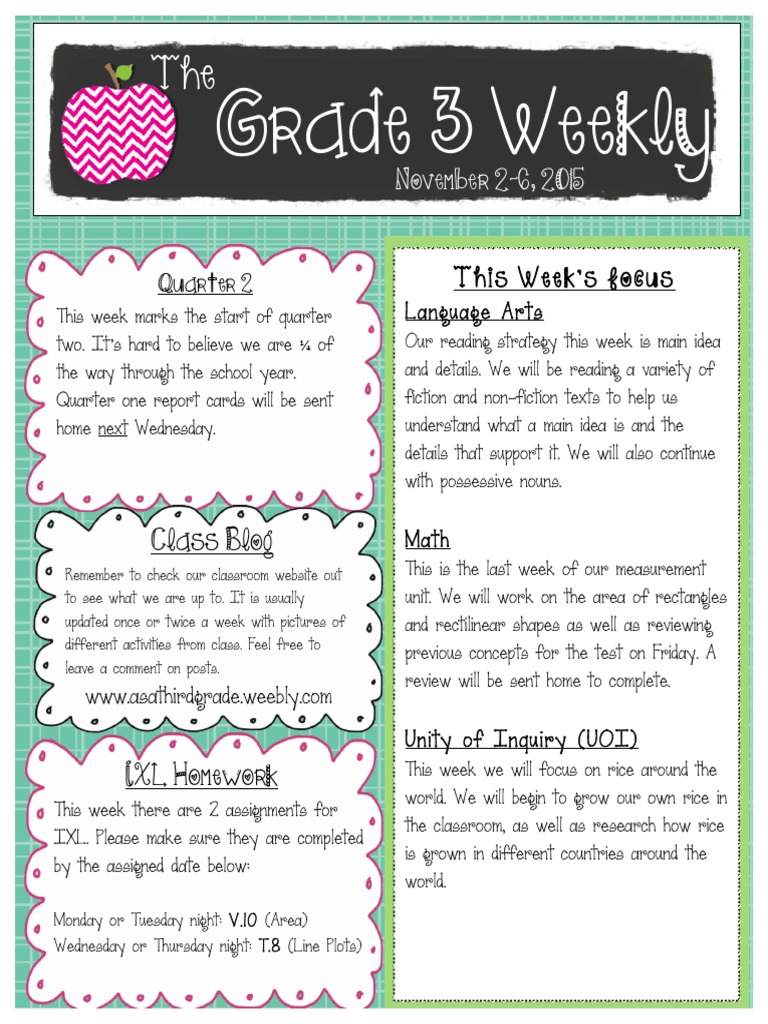 The
Grade 3 Weekly
November 2-6, 2015
Quarter 2
This week marks the start of quarter
two. It's hard to believe we are ¼ of
the way through the school year.
Quarter one report cards will be sent
home next Wednesday.
Class Blog
Remember to check our classroom website out
to see what we are up to. It is usually
updated once or twice a week with pictures of
different activities from class. Feel free to
leave a comment on posts.
www.asathirdgrade.weebly.com
IXL Homework
This week there are 2 assignments for
IXL. Please make sure they are completed
by the assigned date below:
Monday or Tuesday night: V.10 (Area)
Wednesday or Thursday night: T.8 (Line Plots)
This Week's focus
Language Arts
Our reading strategy this week is main idea
and details. We will be reading a variety of
fiction and non-fiction texts to help us
understand what a main idea is and the
details that support it. We will also continue
with possessive nouns.
Math
This is the last week of our measurement
unit. We will work on the area of rectangles
and rectilinear shapes as well as reviewing
previous concepts for the test on Friday. A
review will be sent home to complete.
Unity of Inquiry (UOI)
This week we will focus on rice around the
world. We will begin to grow our own rice in
the classroom, as well as research how rice
is grown in different countries around the
world.